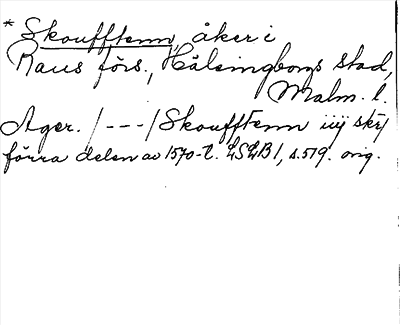 * Skoufftenn, åker i
Raus förs., Hälsingborgs stad,
Malm. l.
Ager. /---/ Skoufftenn iiij skr/
förra delen av 1570-t. LSLB 1, s. 519. orig.